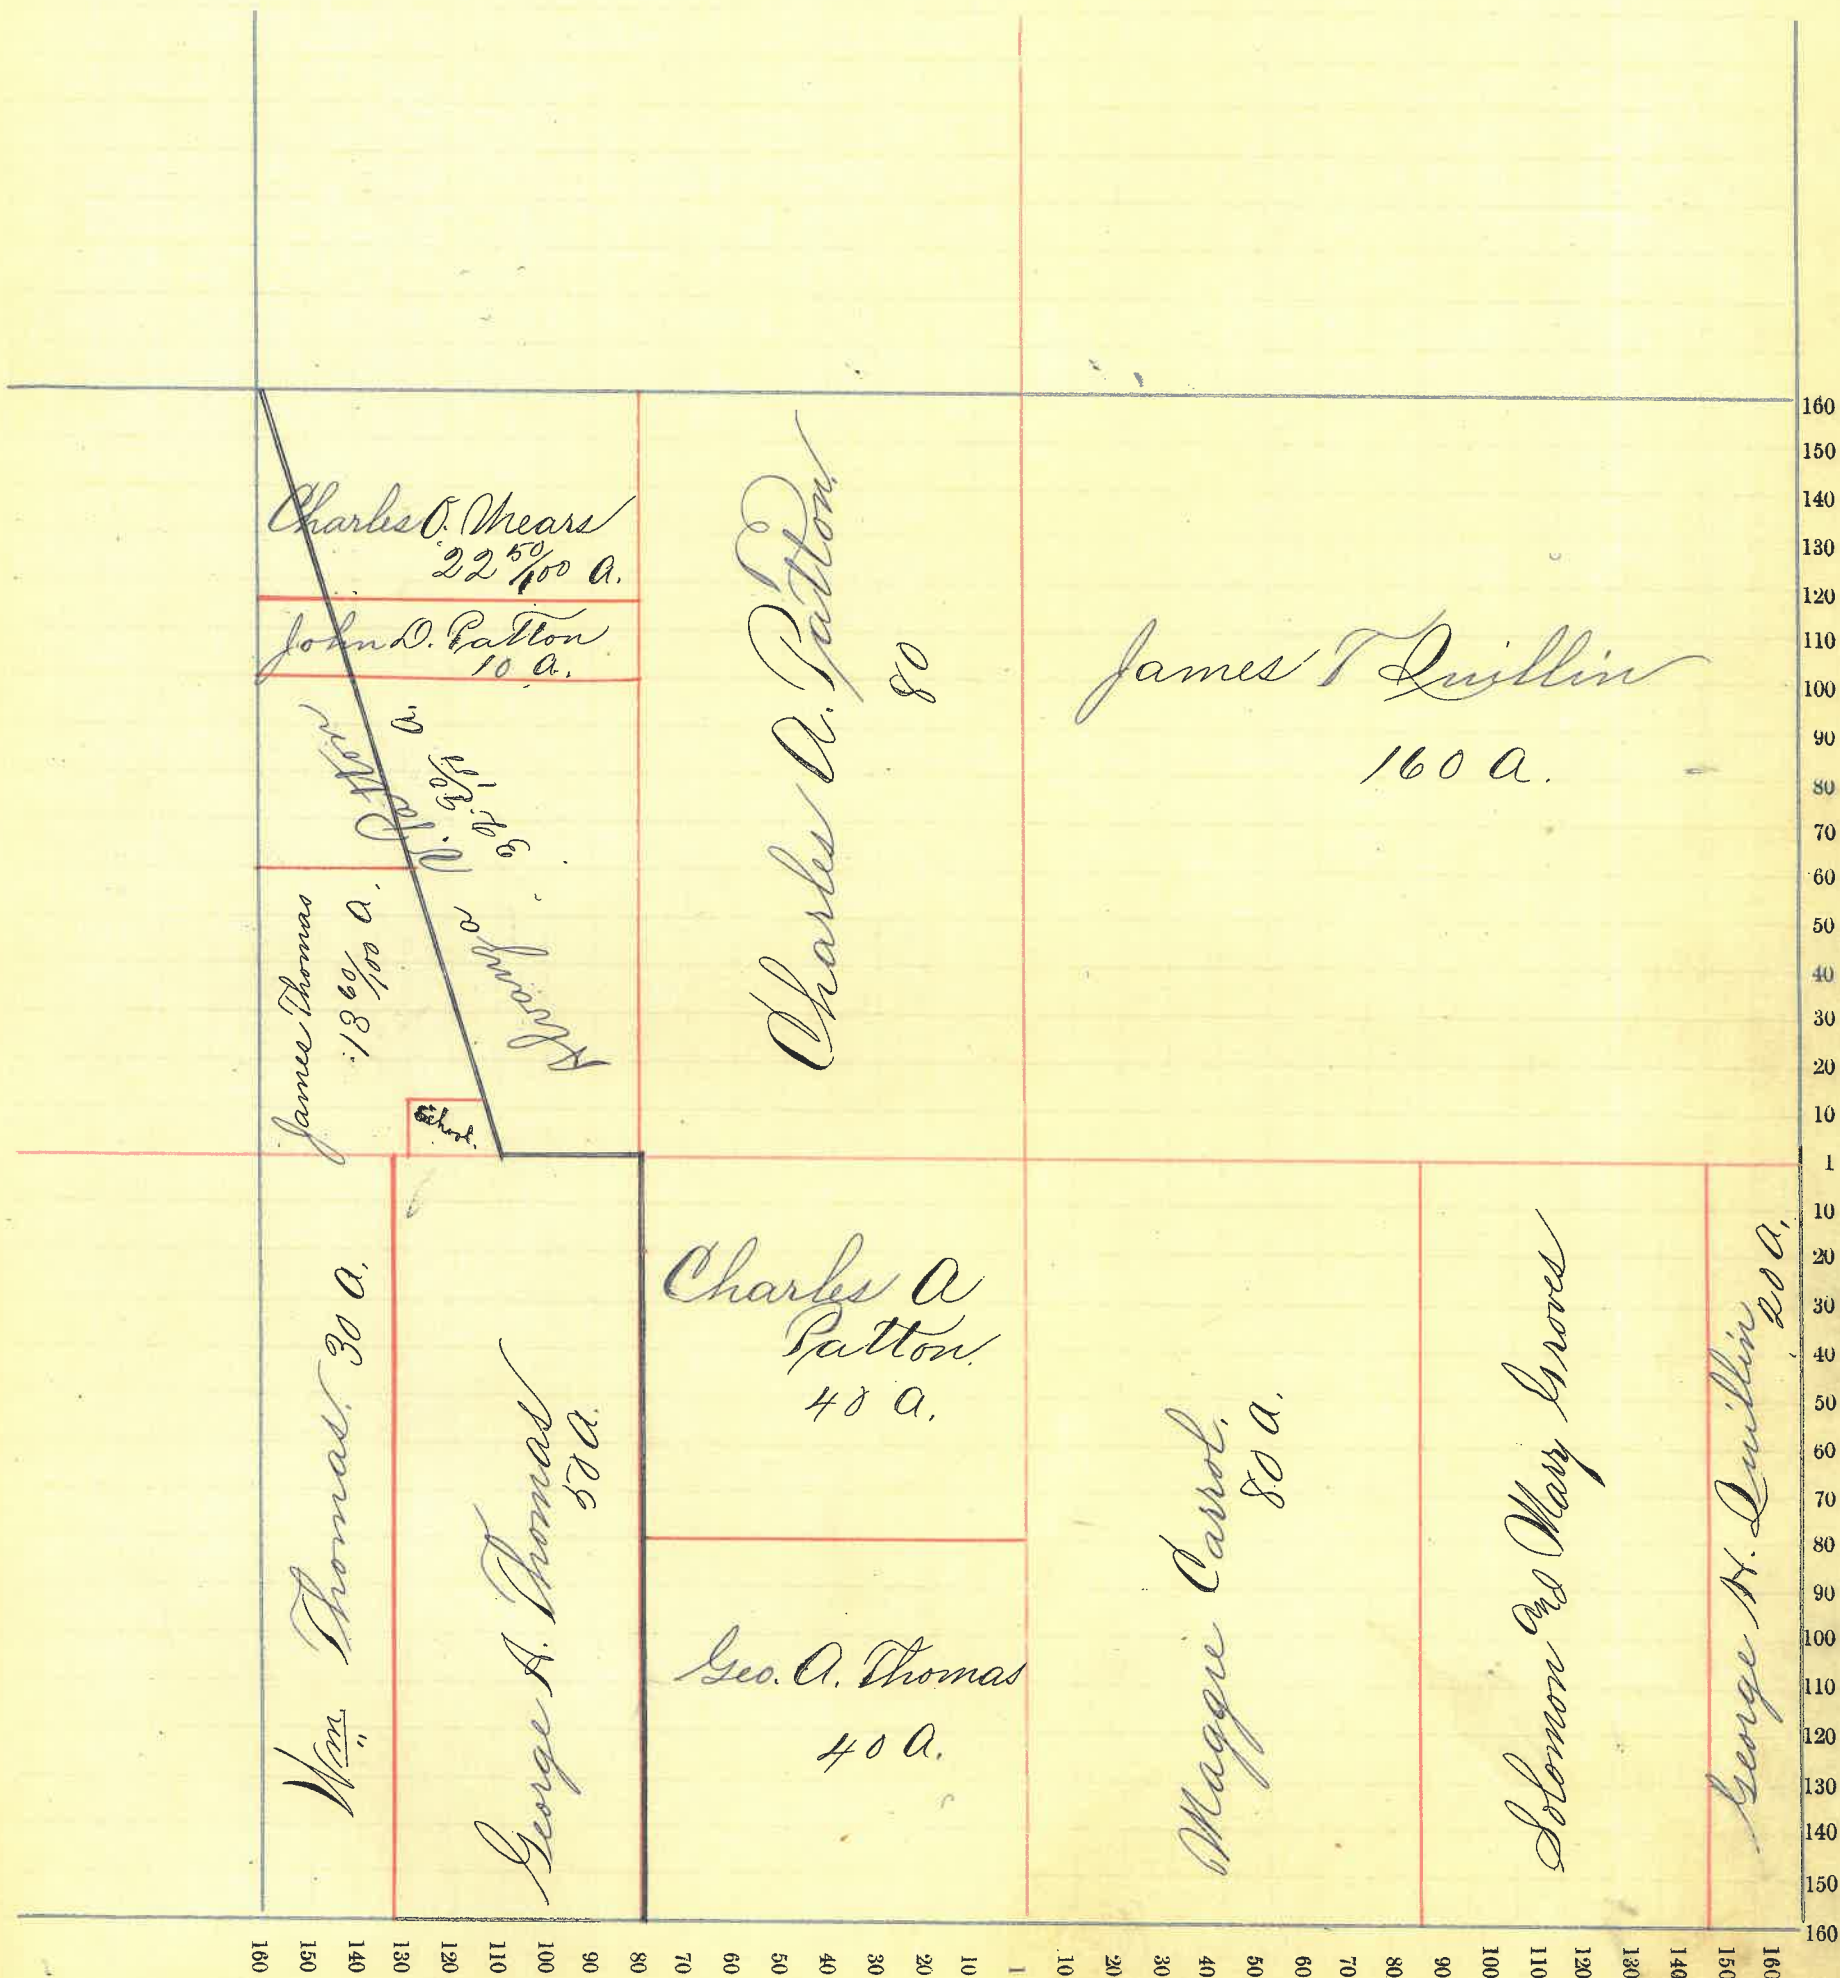 Charles O. Mears
22 50/100 A.
John D. Patton
10 A.
Alvanza V. Patton
A.
James Thomas
13 60/100 A.
School.
Charles A. Patton
80
James T Quillin
160 A.
Wm Thomas. 30 A.
George A. Thomas
50 A.
Charles A
Patton.
40 A.
Geo. A. Thomas
40 A.
Maggie Carrol.
80 A.
Solomon and Mary Groves
George H. Quillin
20 A.
160
150
140
130
120
110
100
90
80
70
60
50
40
30
20
10
1
10
20
30
40
50
60
70
80
90
100
110
120
130
140
150
160
160 150 140 130 120 110 100 90 80 70 60 50 40 30 20 10 1 10 20 30 40 50 60 70 80 90 100 110 120 130 140 150 160